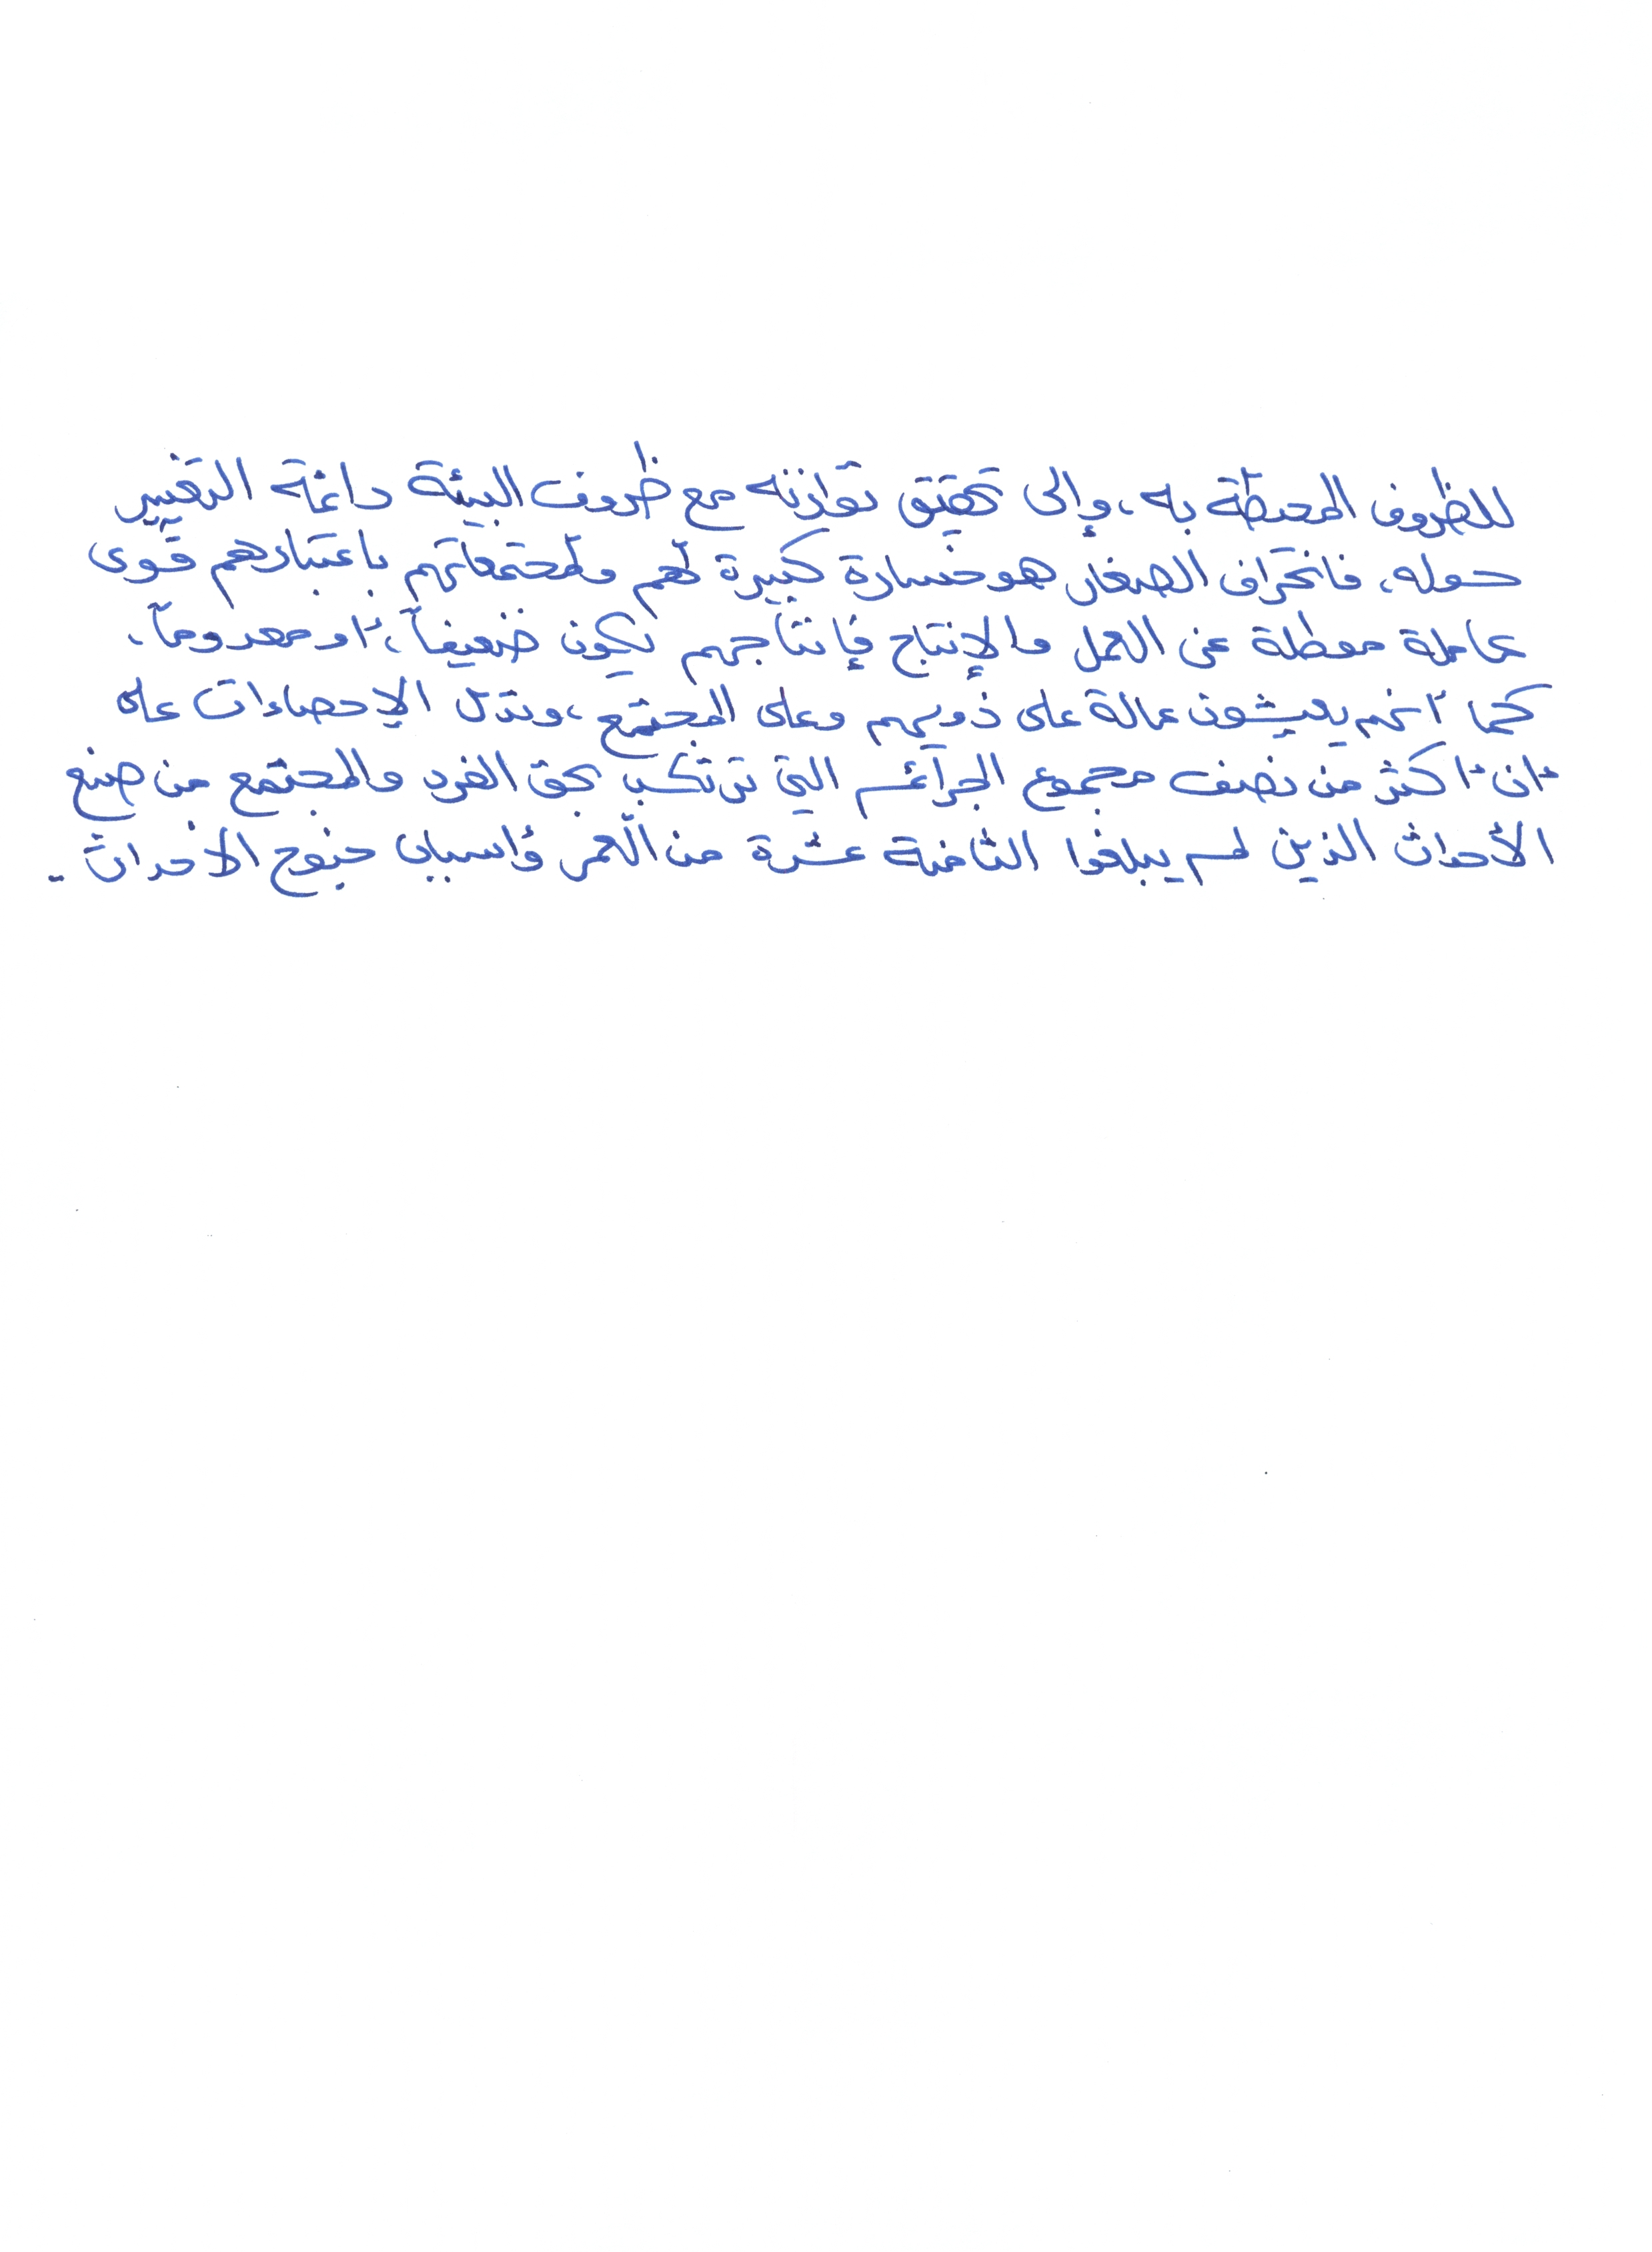 للظروف المحيطة به، وإلى تحقيق توازنه مع ظروف البيئة دائمة التغيير
حوله، فانحراف الصغار هو خسارة كبيرة لهم ولمجتمعاتهم باعتبارهم قوى
عاملة معطلة عن العمل والإنتاج فإنتاجهم يكون ضعيفاً، أو معدوماً،
كما أنهم يعيشون عالة على ذويهم وعلى المجتمع، وتدل الإحصاءات على
أن أكثر من نصف مجموع الجرائم التي ترتكب بحق الفرد والمجتمع من صنع
الأحداث الذين لم يبلغوا الثامنة عشرة من العمر وأسباب جنوح الأحداث -